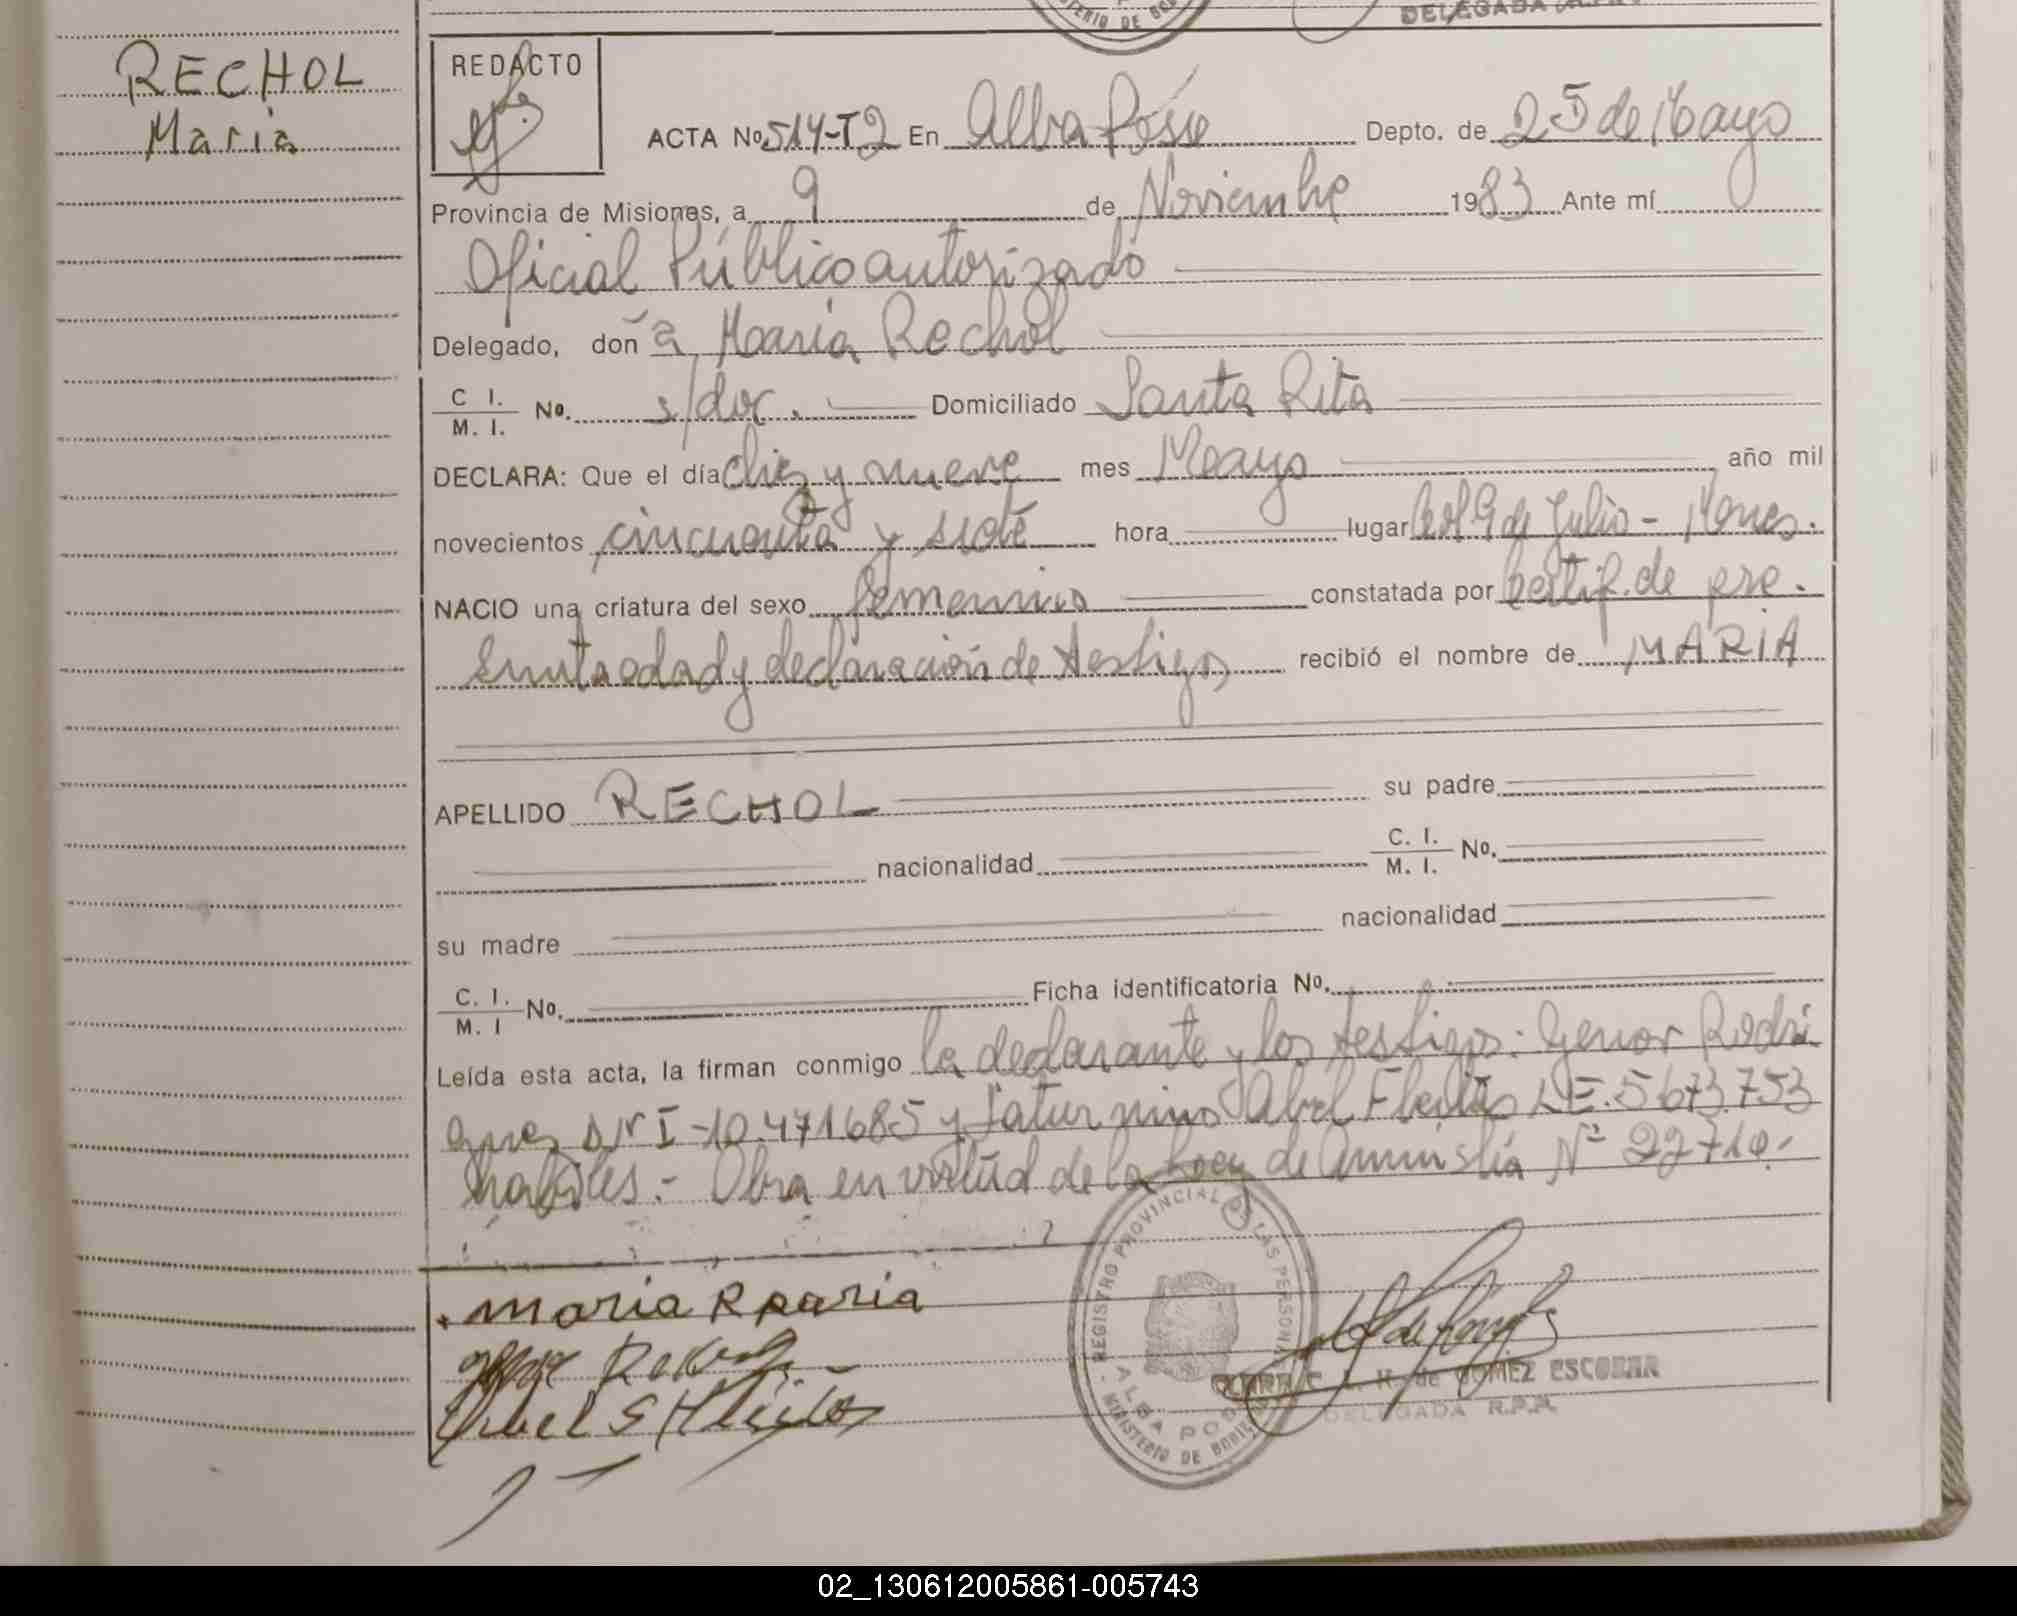 DELEGADA R.P.P.
MINISTERIO DE GOB
RECHOL
Maria
REDACTO
ACTA Nº 514-T2 En Alba Pósse Depto. de 25 de Mayo
Provincia de Misiones, a 9 de Noviembre 1983 Ante mí
Oficial Público autorizado
Delegado, don a María Rechol
C I. / M. I. No. s/doc. Domiciliado Santa Rita
DECLARA: Que el día diez y nueve mes Mayo año mil
novecientos cincuenta y siete hora lugar Col 9 de Julio - Mnes.
NACIO una criatura del sexo femenino constatada por Certif. de pre.
sunta edad y declaración de testigos recibió el nombre de MARIA
APELLIDO RECHOL su padre
nacionalidad C. I. / M. I. No.
su madre nacionalidad
C. I. / M. I No. Ficha identificatoria No.
Leída esta acta, la firman conmigo la declarante y los testigos: Genor Rodri
gues DNI-10.471685 y Saturnino Abel Fleitas LE.5673.753
habiles.- Obra en virtud de la Ley de Amnistía Nº 22710.-
Maria
REGISTRO PROVINCIAL DE LAS PERSONAS
ALBA POSSE
MINISTERIO DE GOBIERNO
C. L. H. de GOMEZ ESCOBAR
DELEGADA R.P.P.
02_130612005861-005743